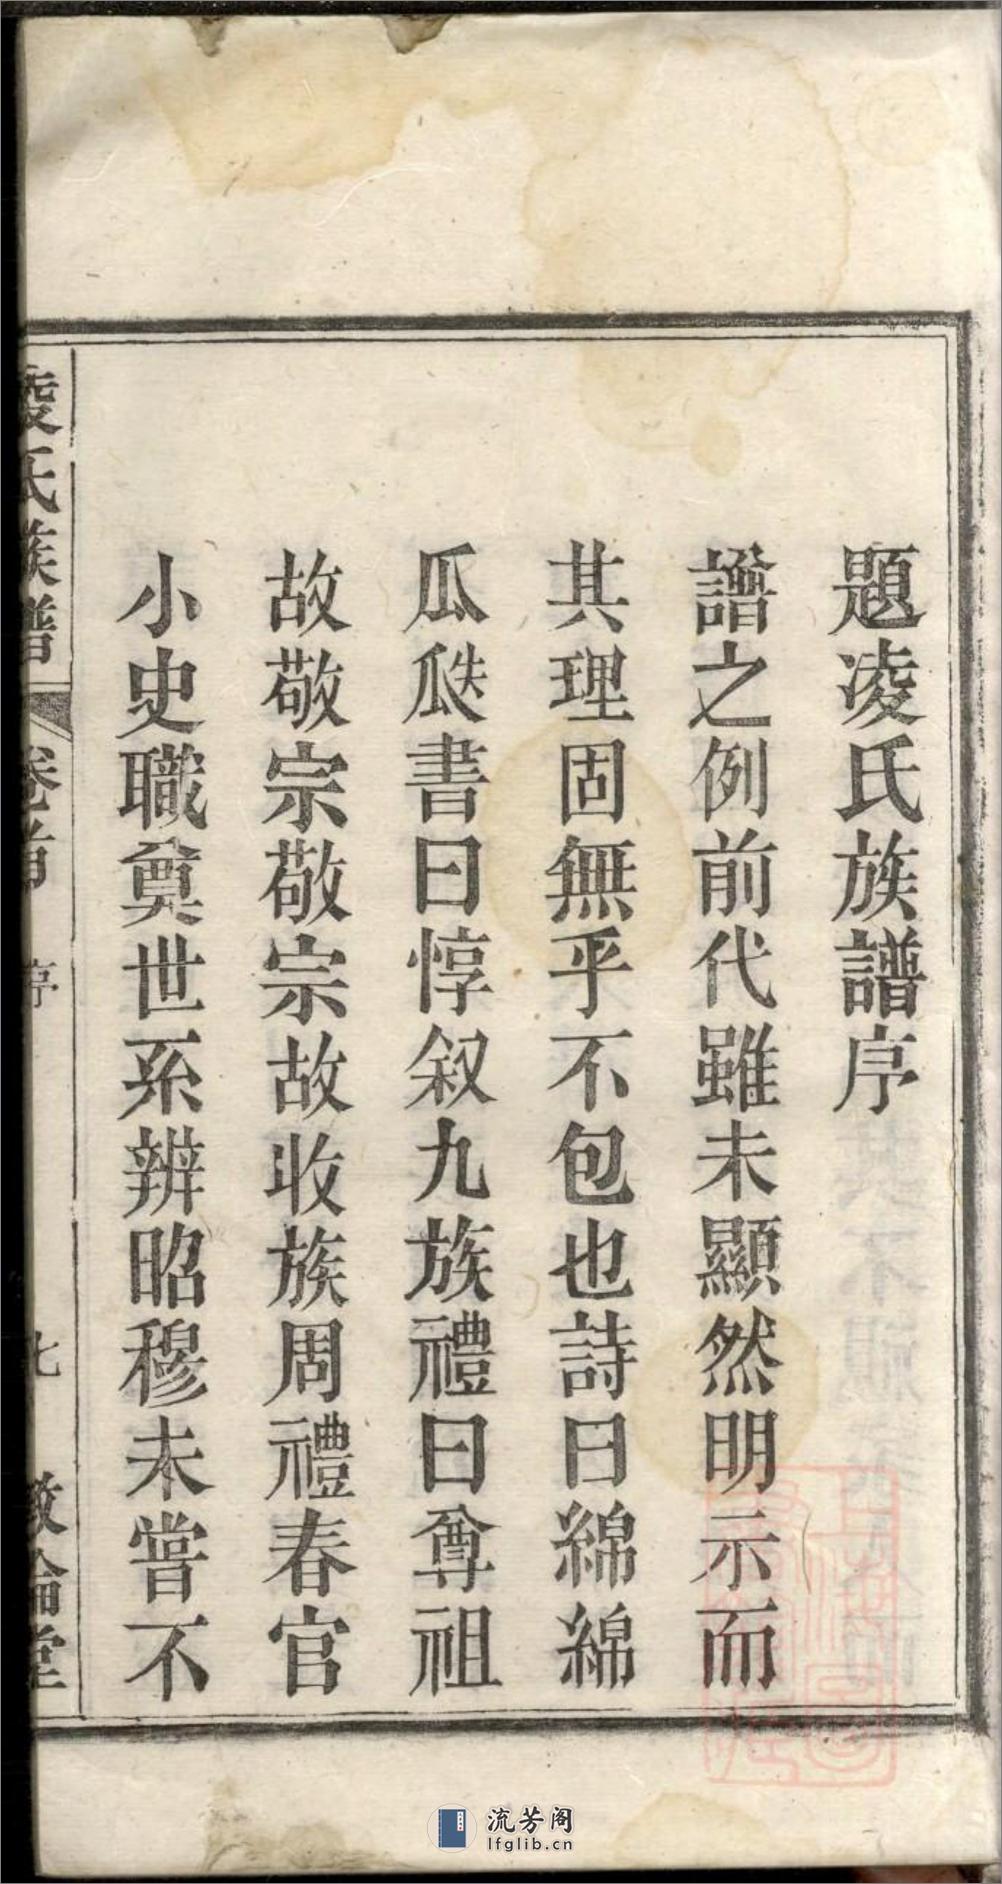 題凌氏族譜序
譜之例前代雖未顯然明示而
其理固無乎不包也詩曰綿綿
瓜瓞書曰惇叙九族禮曰尊祖
故敬宗敬宗故收族周禮春官
小史職奠世系辨昭穆未嘗不
凌氏族譜 卷首 序 七 敦倫堂
流芳阁
lfglib.cn